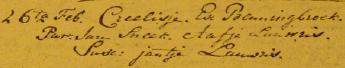 26te Feb. Creelisje. Ex Penningbroek.
Par: Jan Sneek. Aafje Lauwris.
Susc: Jantje Lauwris.